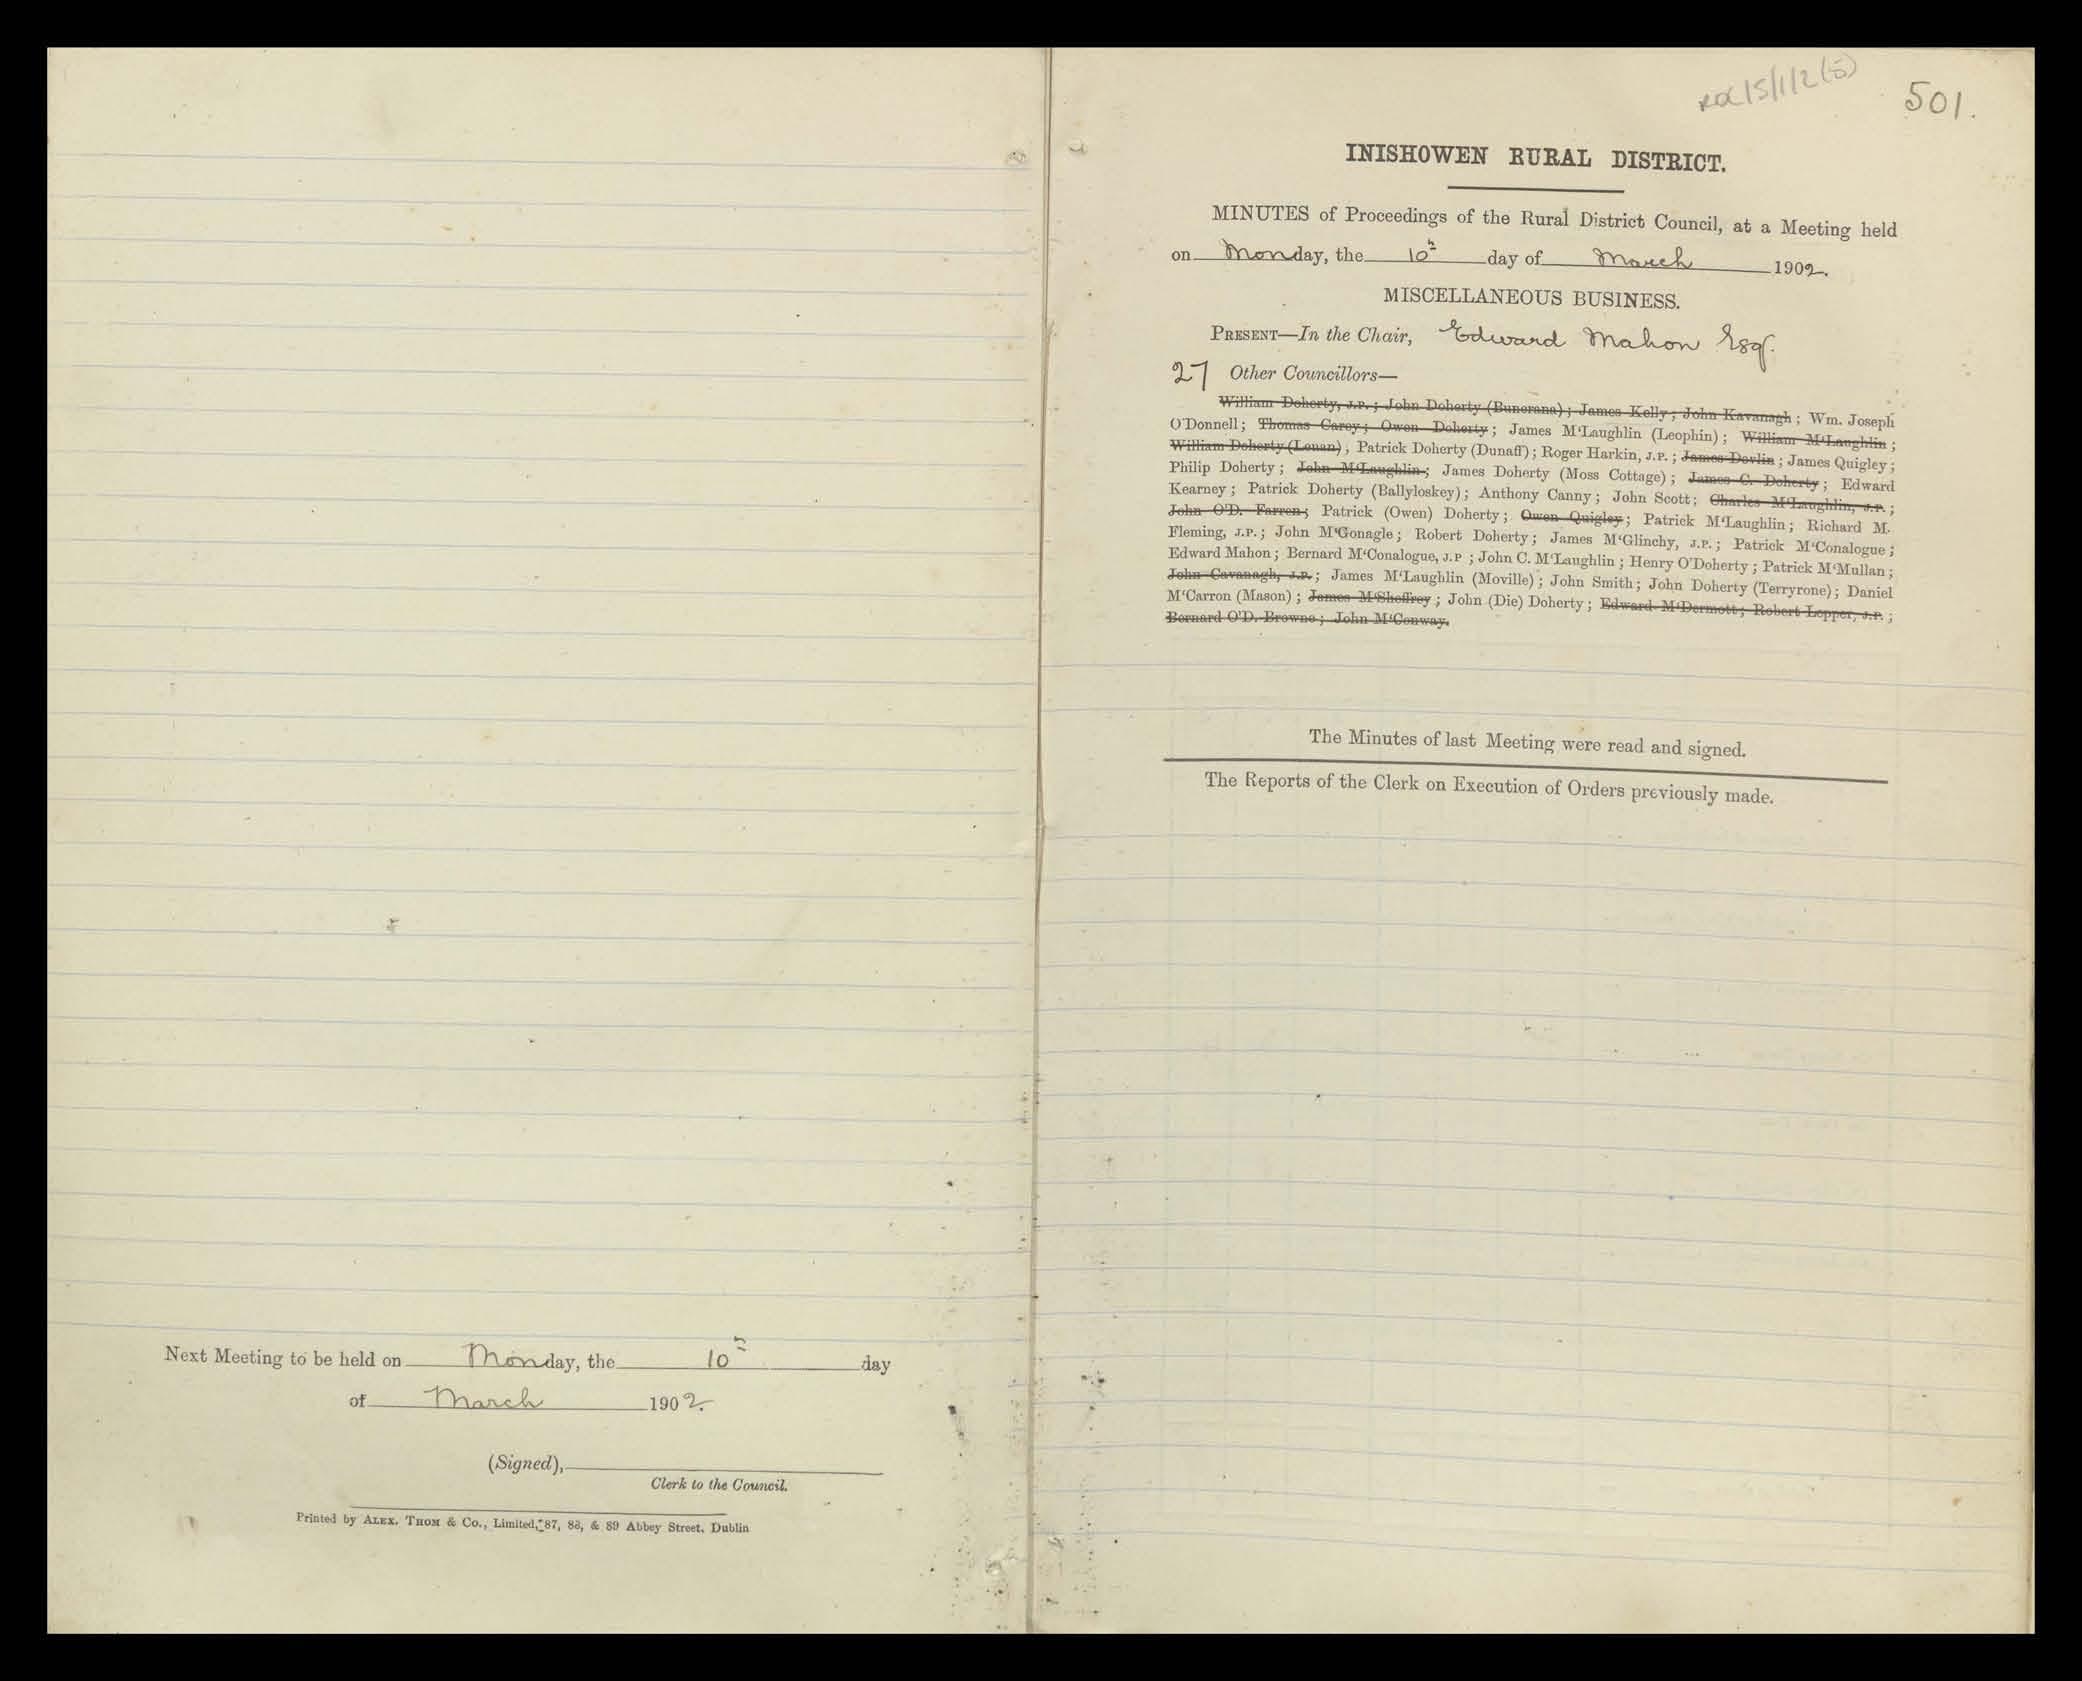 Next Meeting to be held on Monday, the 10th day
of March 1902.
(Signed),
Clerk to the Council.
Printed by ALEX. THOM & Co., Limited, 87, 88, & 89 Abbey Street, Dublin
RDC/5/1/2(5)
501.
INISHOWEN RURAL DISTRICT.
MINUTES of Proceedings of the Rural District Council, at a Meeting held
on Monday, the 10th day of March 1902.
MISCELLANEOUS BUSINESS.
PRESENT—In the Chair, Edward Mahon Esq.
27 Other Councillors—
William Doherty, J.P.; John Doherty (Buncrana); James Kelly; John Kavanagh; Wm. Joseph
O'Donnell; Thomas Carey; Owen Doherty; James M'Laughlin (Leophin); William M'Laughlin;
William Doherty (Lenan); Patrick Doherty (Dunaff); Roger Harkin, J.P.; James Devlin; James Quigley;
Philip Doherty; John M'Laughlin; James Doherty (Moss Cottage); James C. Doherty; Edward
Kearney; Patrick Doherty (Ballyloskey); Anthony Canny; John Scott; Charles M'Laughlin, J.P.;
John O'D. Farren; Patrick (Owen) Doherty; Owen Quigley; Patrick M'Laughlin; Richard M.
Fleming, J.P.; John M'Gonagle; Robert Doherty; James M'Glinchy, J.P.; Patrick M'Conalogue;
Edward Mahon; Bernard M'Conalogue, J.P; John C. M'Laughlin; Henry O'Doherty; Patrick M'Mullan;
John Cavanagh, J.P.; James M'Laughlin (Moville); John Smith; John Doherty (Terryrone); Daniel
M'Carron (Mason); James M'Sheffrey; John (Die) Doherty; Edward M'Dermott; Robert Lepper, J.P.;
Bernard O'D. Browne; John M'Conway.
The Minutes of last Meeting were read and signed.
The Reports of the Clerk on Execution of Orders previously made.